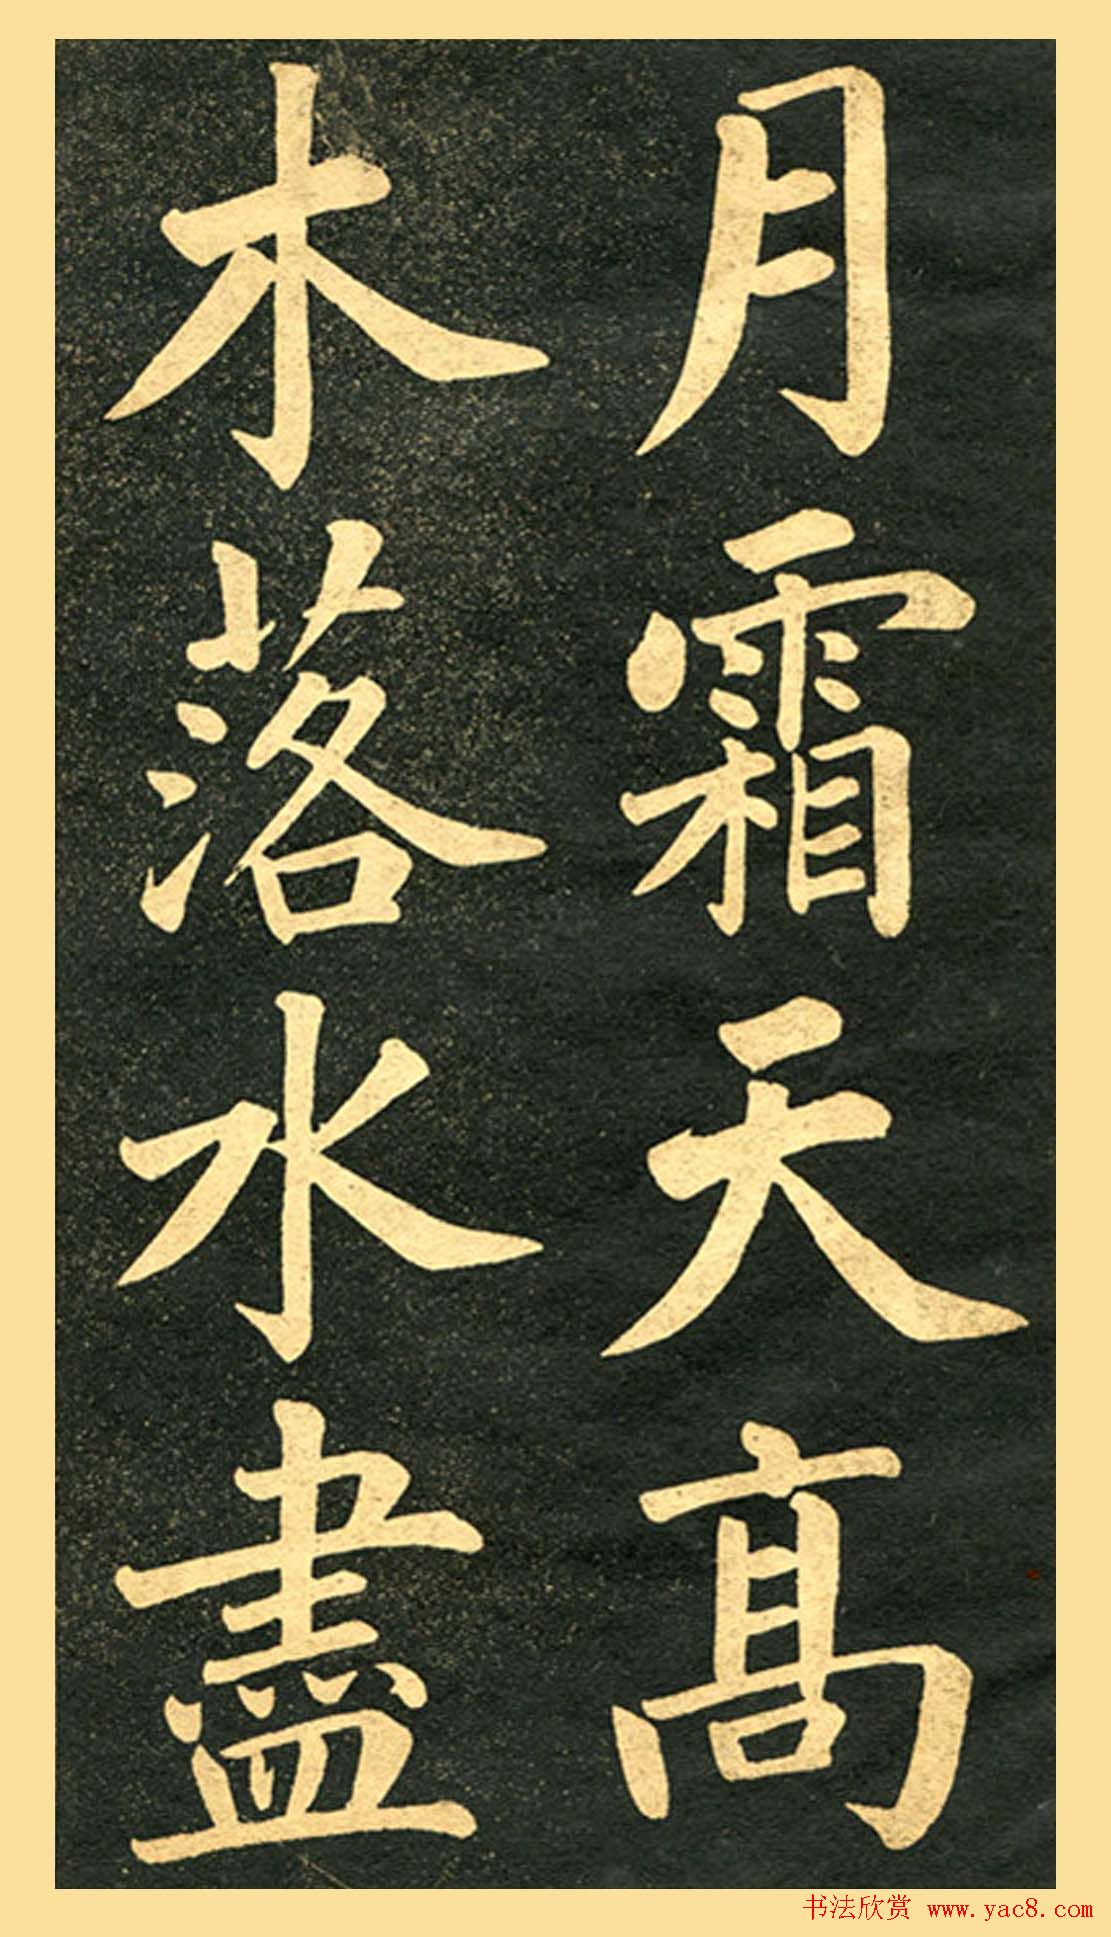 月霜天高
木落水盡
书法欣赏 www.yac8.com